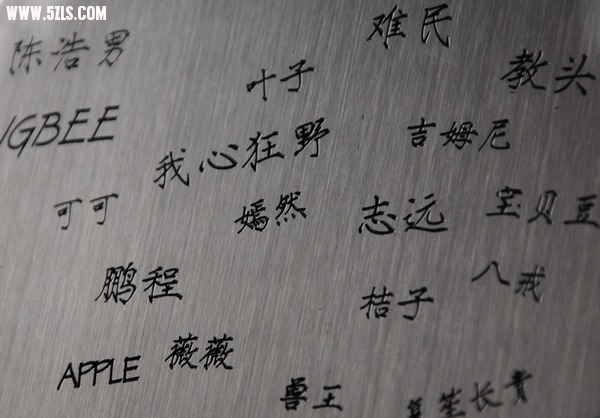 WWW.5ZLS.COM
难民
陈浩男
叶子
教头
IGBEE
我心狂野
吉姆尼
可可
嫣然
志远
宝贝豆
鹏程
桔子
八戒
APPLE
薇薇
兽王
笙长青